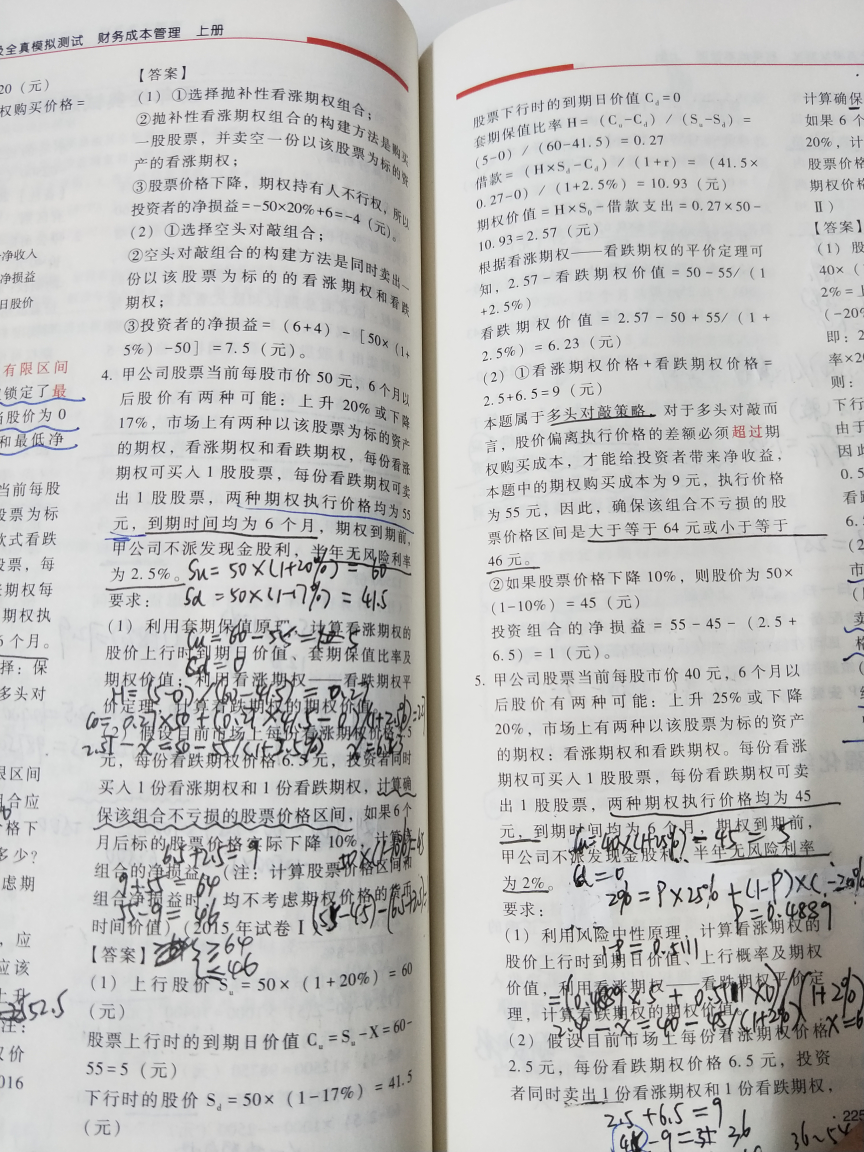 及全真模拟测试 财务成本管理 上册
20（元）
权购买价格=
净收入
净损益
日股价
有限区间
锁定了最
当股价为0
和最低净
当前每股
股票为标
欧式看跌
股票，每
期权每
期权执
6个月。
择：保
多头对
限区间
组合应
格下
多少？
虑期
，应
应该
上升
52.5
注：
权价
016
【答案】
（1）①选择抛补性看涨期权组合；
②抛补性看涨期权组合的构建方法是购买
一股股票，并卖空一份以该股票为标的资
产的看涨期权；
③股票价格下降，期权持有人不行权，所以
投资者的净损益=-50×20%+6=-4（元）。
（2）①选择空头对敲组合；
②空头对敲组合的构建方法是同时卖出一
份以该股票为标的的看涨期权和看跌
期权；
③投资者的净损益=（6+4）-［50×（1+
5%）-50］=7.5（元）。
4. 甲公司股票当前每股市价50元，6个月以
后股价有两种可能：上升20%或下降
17%，市场上有两种以该股票为标的资产
的期权，看涨期权和看跌期权，每份看涨
期权可买入1股股票，每份看跌期权可卖
出1股股票，两种期权执行价格均为55
元，到期时间均为6个月，期权到期前，
甲公司不派发现金股利，半年无风险利率
为2.5%。 Su=50×(1+20%)=60
要求： Sd=50×(1-17%)=41.5
（1）利用套期保值原理，计算看涨期权的
Cu=60-55=5
股价上行时到期日价值、套期保值比率及
Cd=0
期权价值；利用看涨期权——看跌期权平
H=(5-0)/(60-41.5)=0.27
价定理，计算看跌期权的期权价值。
（2）假设目前市场上每份看涨期权价格2.5
2.57-x=50-55/(1+2.5%) x=6.23
元，每份看跌期权价格6.5元，投资者同时
买入1份看涨期权和1份看跌期权，计算确
保该组合不亏损的股票价格区间，如果6个
月后标的股票价格实际下降10%，计算该
6.5+2.5=9
组合的净损益。（注：计算股票价格区间和
9+55=64
组合净损益时，均不考虑期权价格的货币
55-9=46
时间价值）（2015年试卷Ⅰ）
【答案】 ≥64
≤46
（1）上行股价Su=50×（1+20%）=60
（元）
股票上行时的到期日价值Cu=Su-X=60-
55=5（元）
下行时的股价Sd=50×（1-17%）=41.5
（元）
股票下行时的到期日价值Cd=0
套期保值比率H=（Cu-Cd）/（Su-Sd）=
（5-0）/（60-41.5）=0.27
借款=（H×Sd-Cd）/（1+r）=（41.5×
0.27-0）/（1+2.5%）=10.93（元）
期权价值=H×S0-借款支出=0.27×50-
10.93=2.57（元）
根据看涨期权——看跌期权的平价定理可
知，2.57-看跌期权价值=50-55/（1
+2.5%）
看跌期权价值=2.57-50+55/（1+
2.5%）=6.23（元）
（2）①看涨期权价格+看跌期权价格=
2.5+6.5=9（元）
本题属于多头对敲策略，对于多头对敲而
言，股价偏离执行价格的差额必须超过期
权购买成本，才能给投资者带来净收益，
本题中的期权购买成本为9元，执行价格
为55元，因此，确保该组合不亏损的股
票价格区间是大于等于64元或小于等于
46元。
②如果股票价格下降10%，则股价为50×
（1-10%）=45（元）
投资组合的净损益=55-45-（2.5+
6.5）=1（元）。
5. 甲公司股票当前每股市价40元，6个月以
后股价有两种可能：上升25%或下降
20%，市场上有两种以该股票为标的资产
的期权：看涨期权和看跌期权。每份看涨
期权可买入1股股票，每份看跌期权可卖
出1股股票，两种期权执行价格均为45
元，到期时间均为6个月，期权到期前，
Cu=40×(1+25%)-45=5
甲公司不派发现金股利，半年无风险利率
为2%。 Cd=0
2%=P×25%+(1-P)×(-20%)
要求： P=0.4889
（1）利用风险中性原理，计算看涨期权的
1-P=0.5111
股价上行时到期日价值、上行概率及期权
价值，利用看涨期权——看跌期权平价定
=(0.4889×5+0.5111×0)/(1+2%)
理，计算看跌期权的期权价值。
2.40-x=40-45/(1+2%) x=6
（2）假设目前市场上每份看涨期权价格
2.5元，每份看跌期权价格6.5元，投资
者同时卖出1份看涨期权和1份看跌期权，
2.5+6.5=9
36 36~54
225
计算确保
如果6个
20%，计
股票价格
期权价格
Ⅱ）
【答案】
（1）股
40×（
2%=上
（-20%
即：2
率×2
则：
下行
由于
因此
0.5
看
6.
（2
市
卖
格